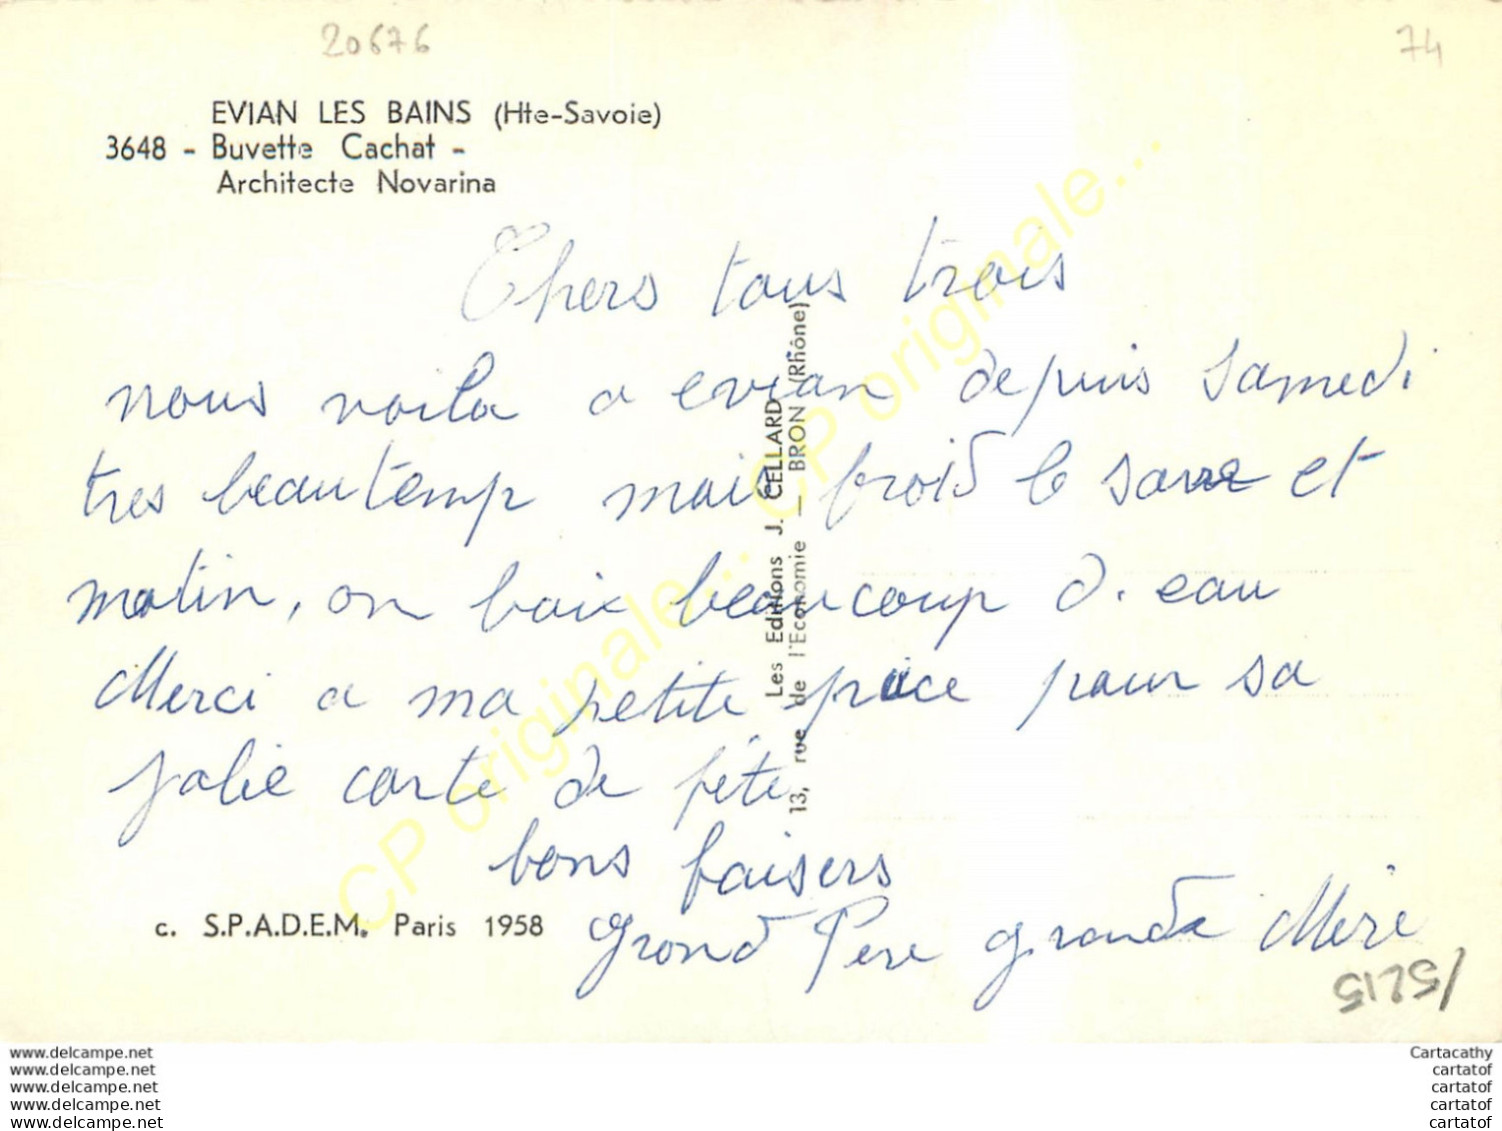 20676
74
EVIAN LES BAINS (Hte-Savoie)
3648 - Buvette Cachat -
Architecte Novarina
Chers tous trois
nous voila a evian depuis samedi
tres beau temp mais froid le et
matin, on boix beaucoup d. eau
Merci a ma petite puce pour sa
jolie carte de fête
bons baisers
grond Pere grande Mere
Les Editions J. CELLARD
13, rue de l'Economie — BRON (Rhône)
c. S.P.A.D.E.M. Paris 1958
CP originale... CP originale...
www.delcampe.net
www.delcampe.net
www.delcampe.net
www.delcampe.net
www.delcampe.net
Cartacathy
cartatof
cartatof
cartatof
cartatof